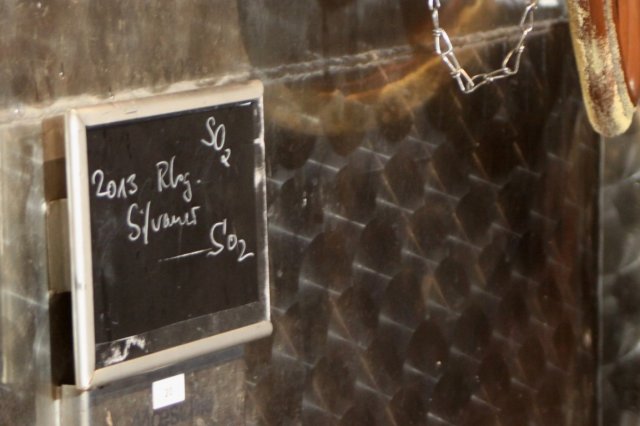 SO2
2013 Rbg.
Silvaner
SO2
20